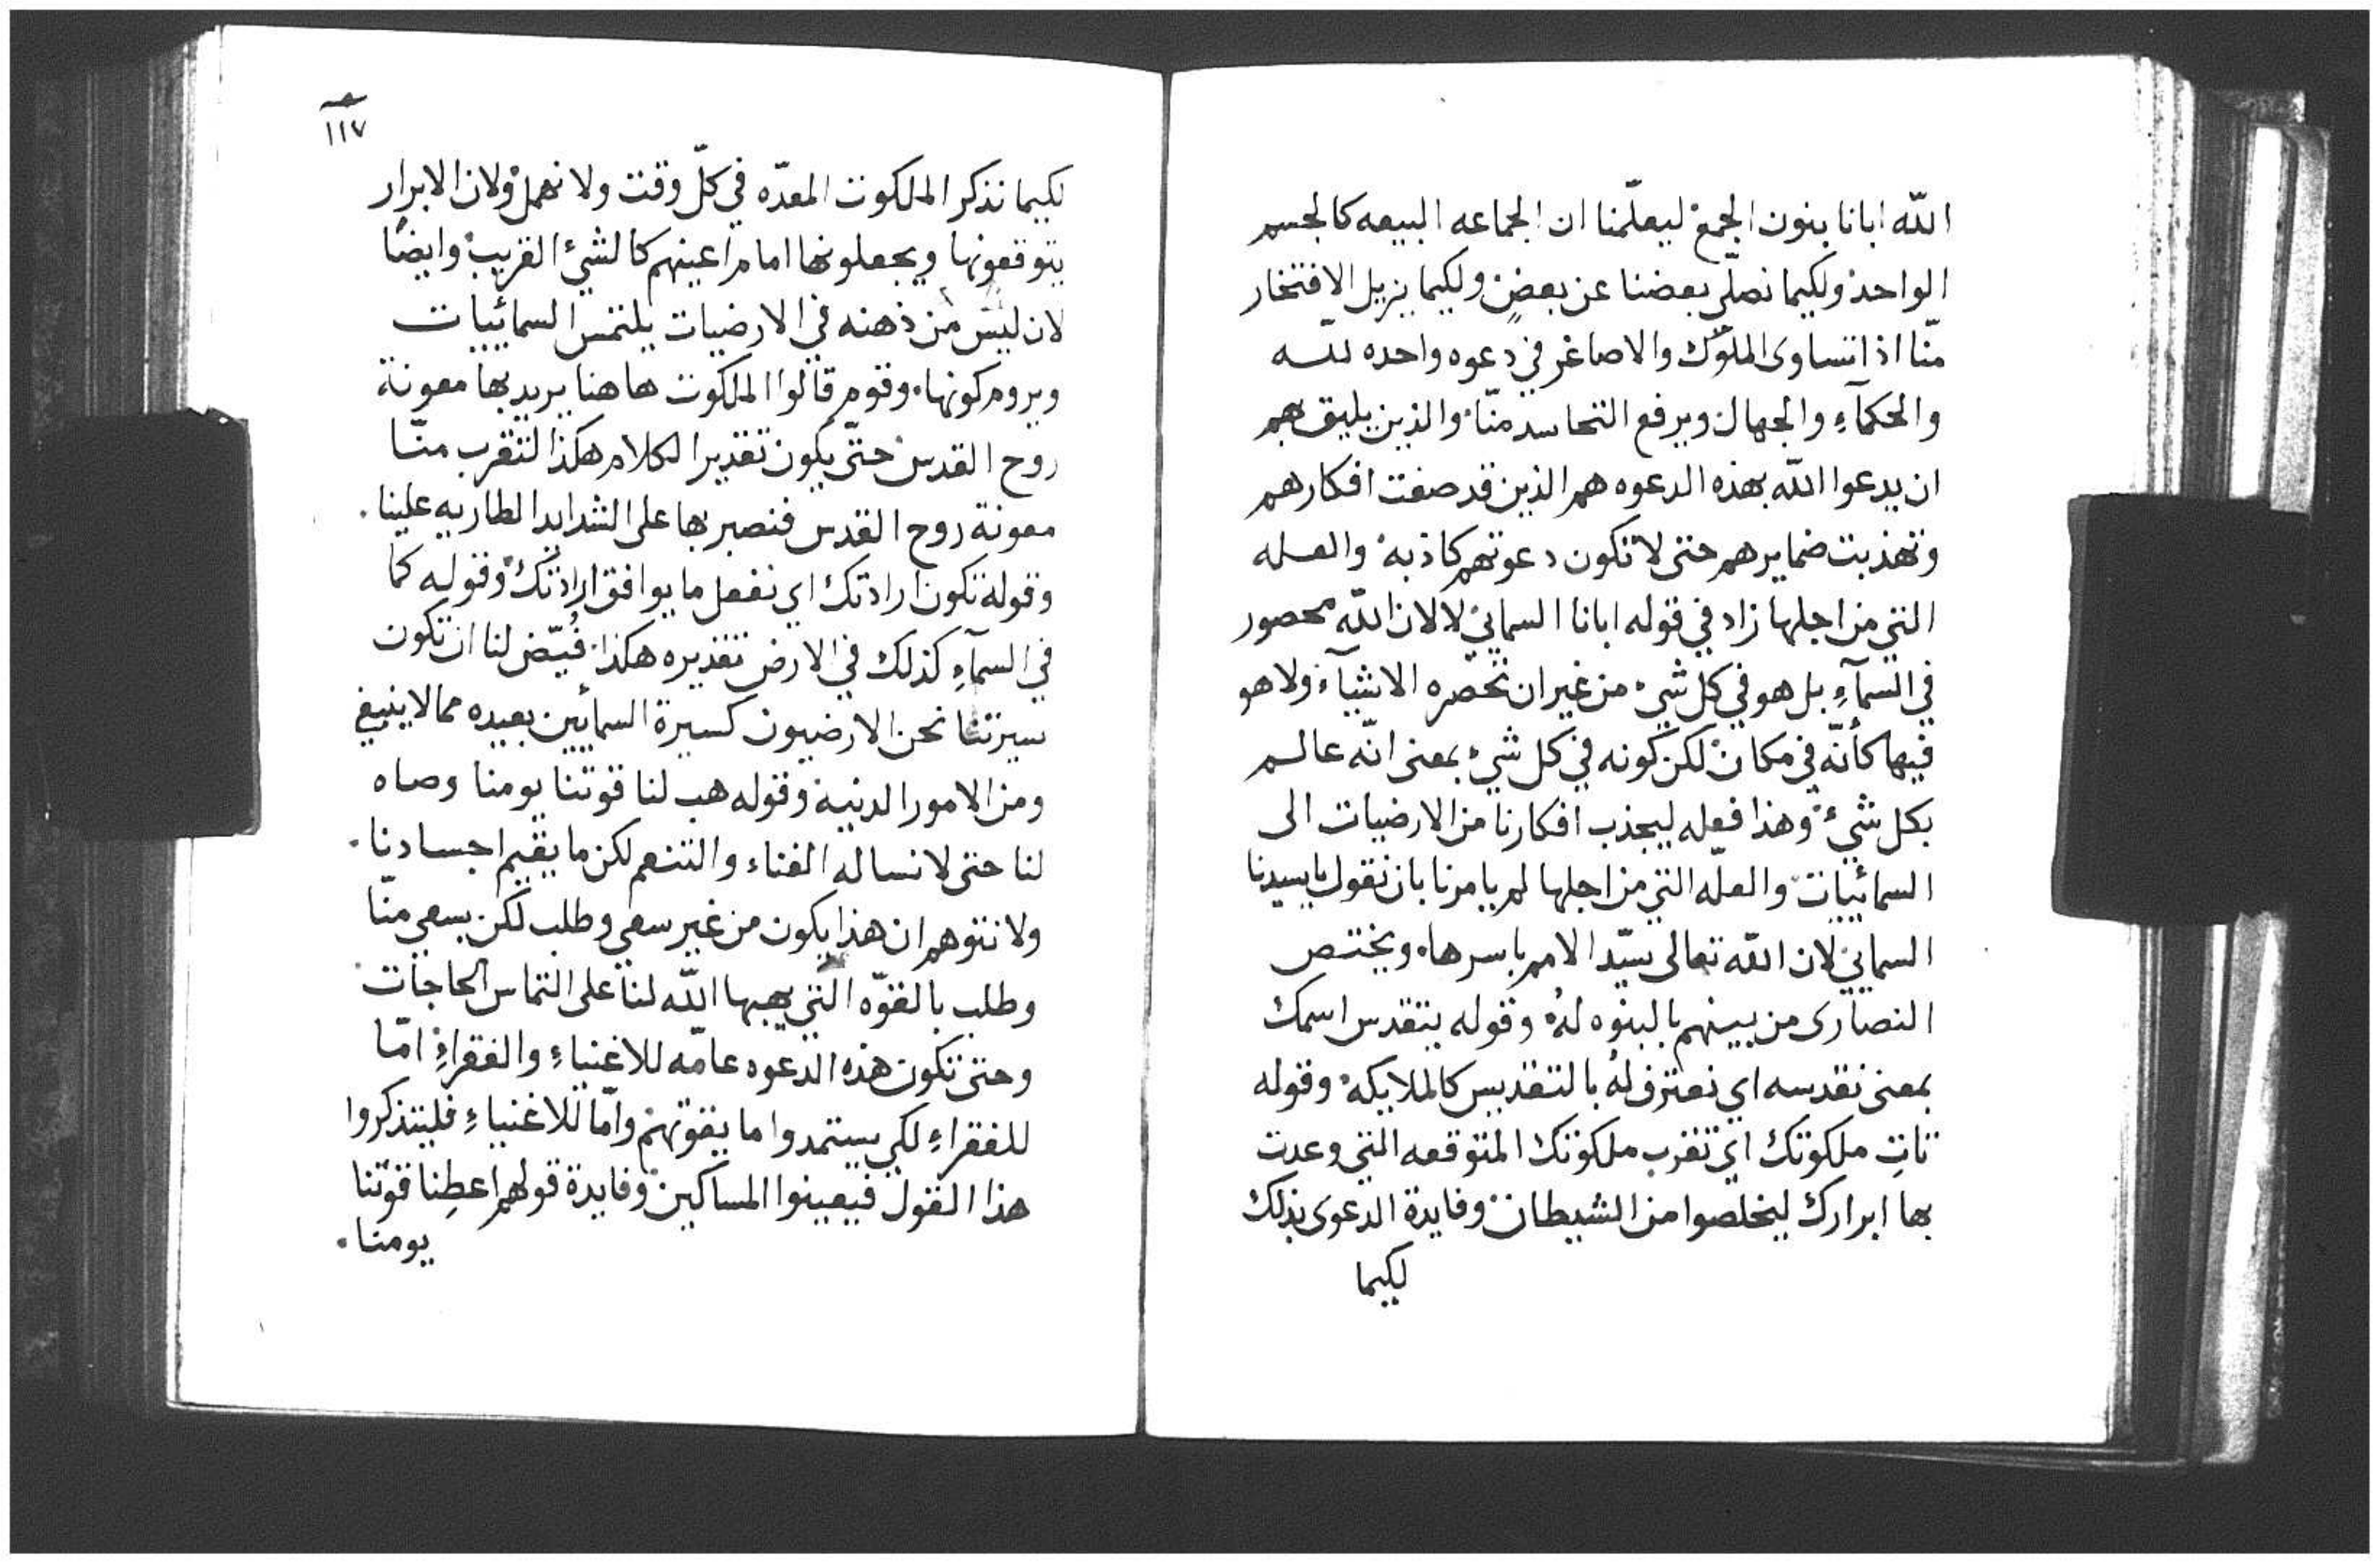 الله ابانا بنون الجمع ليعلّمنا ان الجماعه البيعه كالجسم
الواحد ولكيما نصلّي بعضنا عن بعضٍ ولكيما يزيل الافتخار
منّا اذا تساوى الملوك والاصاغر في دعوه واحده لله
والحكمآءِ والجهال ويرفع التحاسد منّا والذين يليق بهم
ان يدعوا الله بهذه الدعوه هم الذين قد صفت افكارهم
وتهذبت ضمايرهم حتى لا تكون دعوتهم كاذبه والعله
التي من اجلها زاد في قوله ابانا السمائي لا لان الله محصور
في السمآءِ بل هو في كل شيء من غير ان تحصره الاشيآء ولا هو
فيها كأنّه في مكان لكن كونه في كل شيء بمعنى انّه عالم
بكل شيء وهذا فعله ليجذب افكارنا من الارضيات الى
السمائييات والعلّه التي من اجلها لم يامرنا بان نقول يا سيدنا
السمائي لان الله تعالى سيّد الامم باسرها ويختص
النصارى من بينهم بالبنوه لهُ وقوله يتقدس اسمك
بمعنى نقدسه اي نعترف لهُ بالتقديس كالملايكه وقوله
تاتِ ملكوتك اي تقرب ملكوتك المتوقعه التي وعدت
بها ابرارك ليخلصوا من الشيطان وفايدة الدعوى بذلك
لكيما
١١٧
لكيما نذكر الملكوت المعدّه في كلّ وقت ولا نهمل ولان الابرار
يتوقعونها ويجعلونها امام اعينهم كالشيء القريب وايضًا
لان ليس من ذهنه في الارضيات يلتمس السمائييات
ويروم كونها. وقوم قالوا الملكوت هاهنا يريد بها معونة
روح القدس حتّى يكون تقدير الكلام هكذا لتقرب منّا
معونة روح القدس فنصبر بها على الشدايد الطاريه علينا.
وقوله تكون ارادتك اي نفعل ما يوافق ارادتك وقوله كما
في السمآءِ كذلك في الارض تقديره هكذا. قُيّض لنا ان تكون
سيرتنا نحن الارضيون كسيرة السمائيين بعيده مما لا ينبغي
ومن الامور الدنية وقوله هب لنا قوتنا يومنا وصاه
لنا حتى لا نساله الغناء والتنعم لكن ما يقيم اجسادنا.
ولا نتوهم ان هذا يكون من غير سعي وطلب لكن بسعي منّا
وطلب بالقوّه التي يهبها الله لنا على التماس الحاجات
وحتى تكون هذه الدعوه عامّه للاغنياءِ والفقراءِ امّا
للفقراءِ لكي يستمدوا ما يفوتهم وامّا للاغنياءِ فليتذكروا
هذا القول فيعينوا المساكين وفايدة قولهم اعطِنا قوتنا
يومنا.